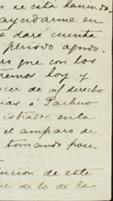 se está haciendo
ayudarme en
e daré cuenta
periodo agudo.
ro que con los
tremos hoy y
acer de mi pecho
nas á Pachuca
istrado en la
el amparo de
tomando pose
ución de este
ue de la de la